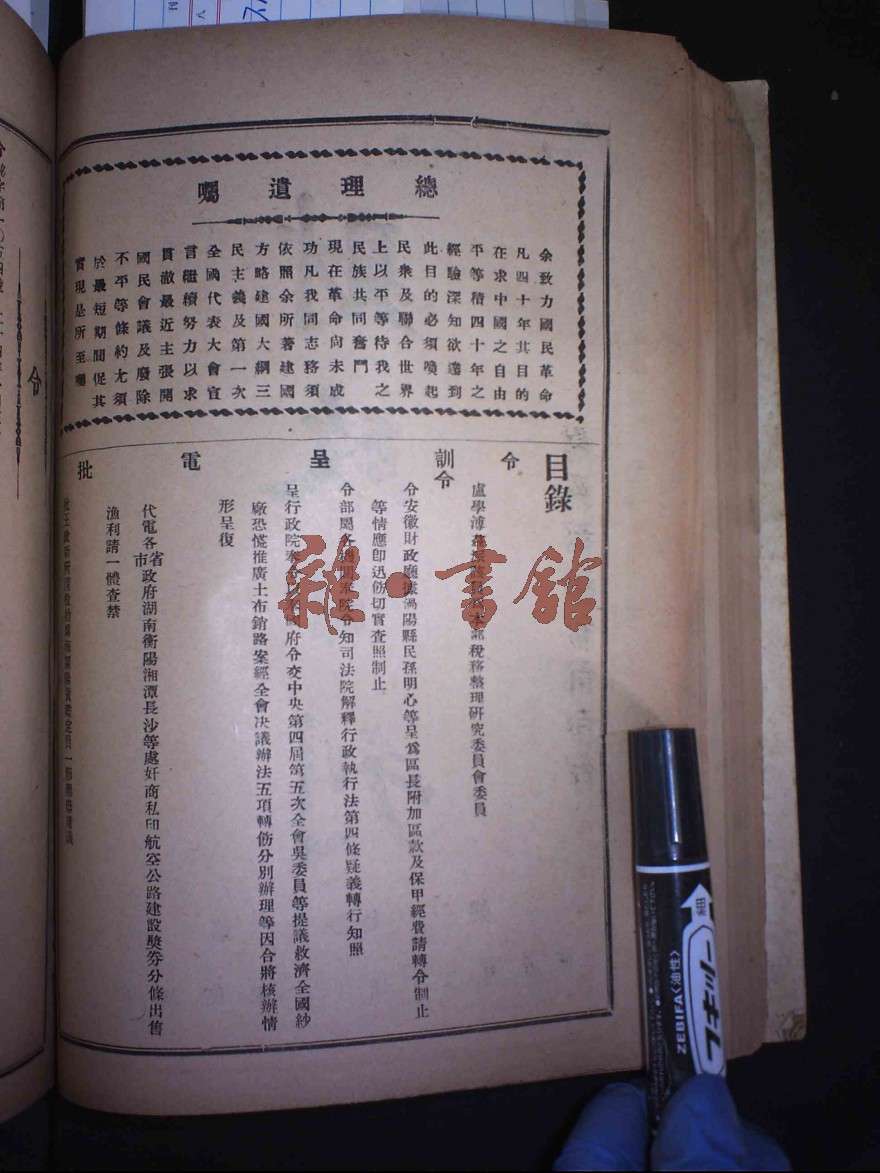 總理遺囑
余致力國民革命
凡四十年其目的
在求中國之自由
平等積四十年之
經驗深知欲達到
此目的必須喚起
民衆及聯合世界
上以平等待我之
民族共同奮鬥
現在革命尚未成
功凡我同志務須
依照余所著建國
方略建國大綱三
民主義及第一次
全國代表大會宣
言繼續努力以求
貫澈最近主張開
國民會議及廢除
不平等條約尤須
於最短期間促其
實現是所至囑
目錄
令
盧學溥 本部稅務整理研究委員會委員
訓令
令安徽財政廳據渦陽縣民孫明心等呈爲區長附加區款及保甲經費請轉令制止
等情應卽迅飭切實查照制止
令部屬各機關奉院令知司法院解釋行政執行法第四條疑義轉行知照
呈
呈行政院奉 府令交中央第四屆第五次全會吳委員等提議救濟全國紗
廠恐慌推廣土布銷路案經全會决議辦法五項轉飭分別辦理等因合將核辦情
形呈復
電
代電各省市政府湖南衡陽湘潭長沙等處奸商私印航空公路建設獎券分條出售
漁利請一體查禁
批
令
雜·書館
ZEBIFA〈油性〉
細